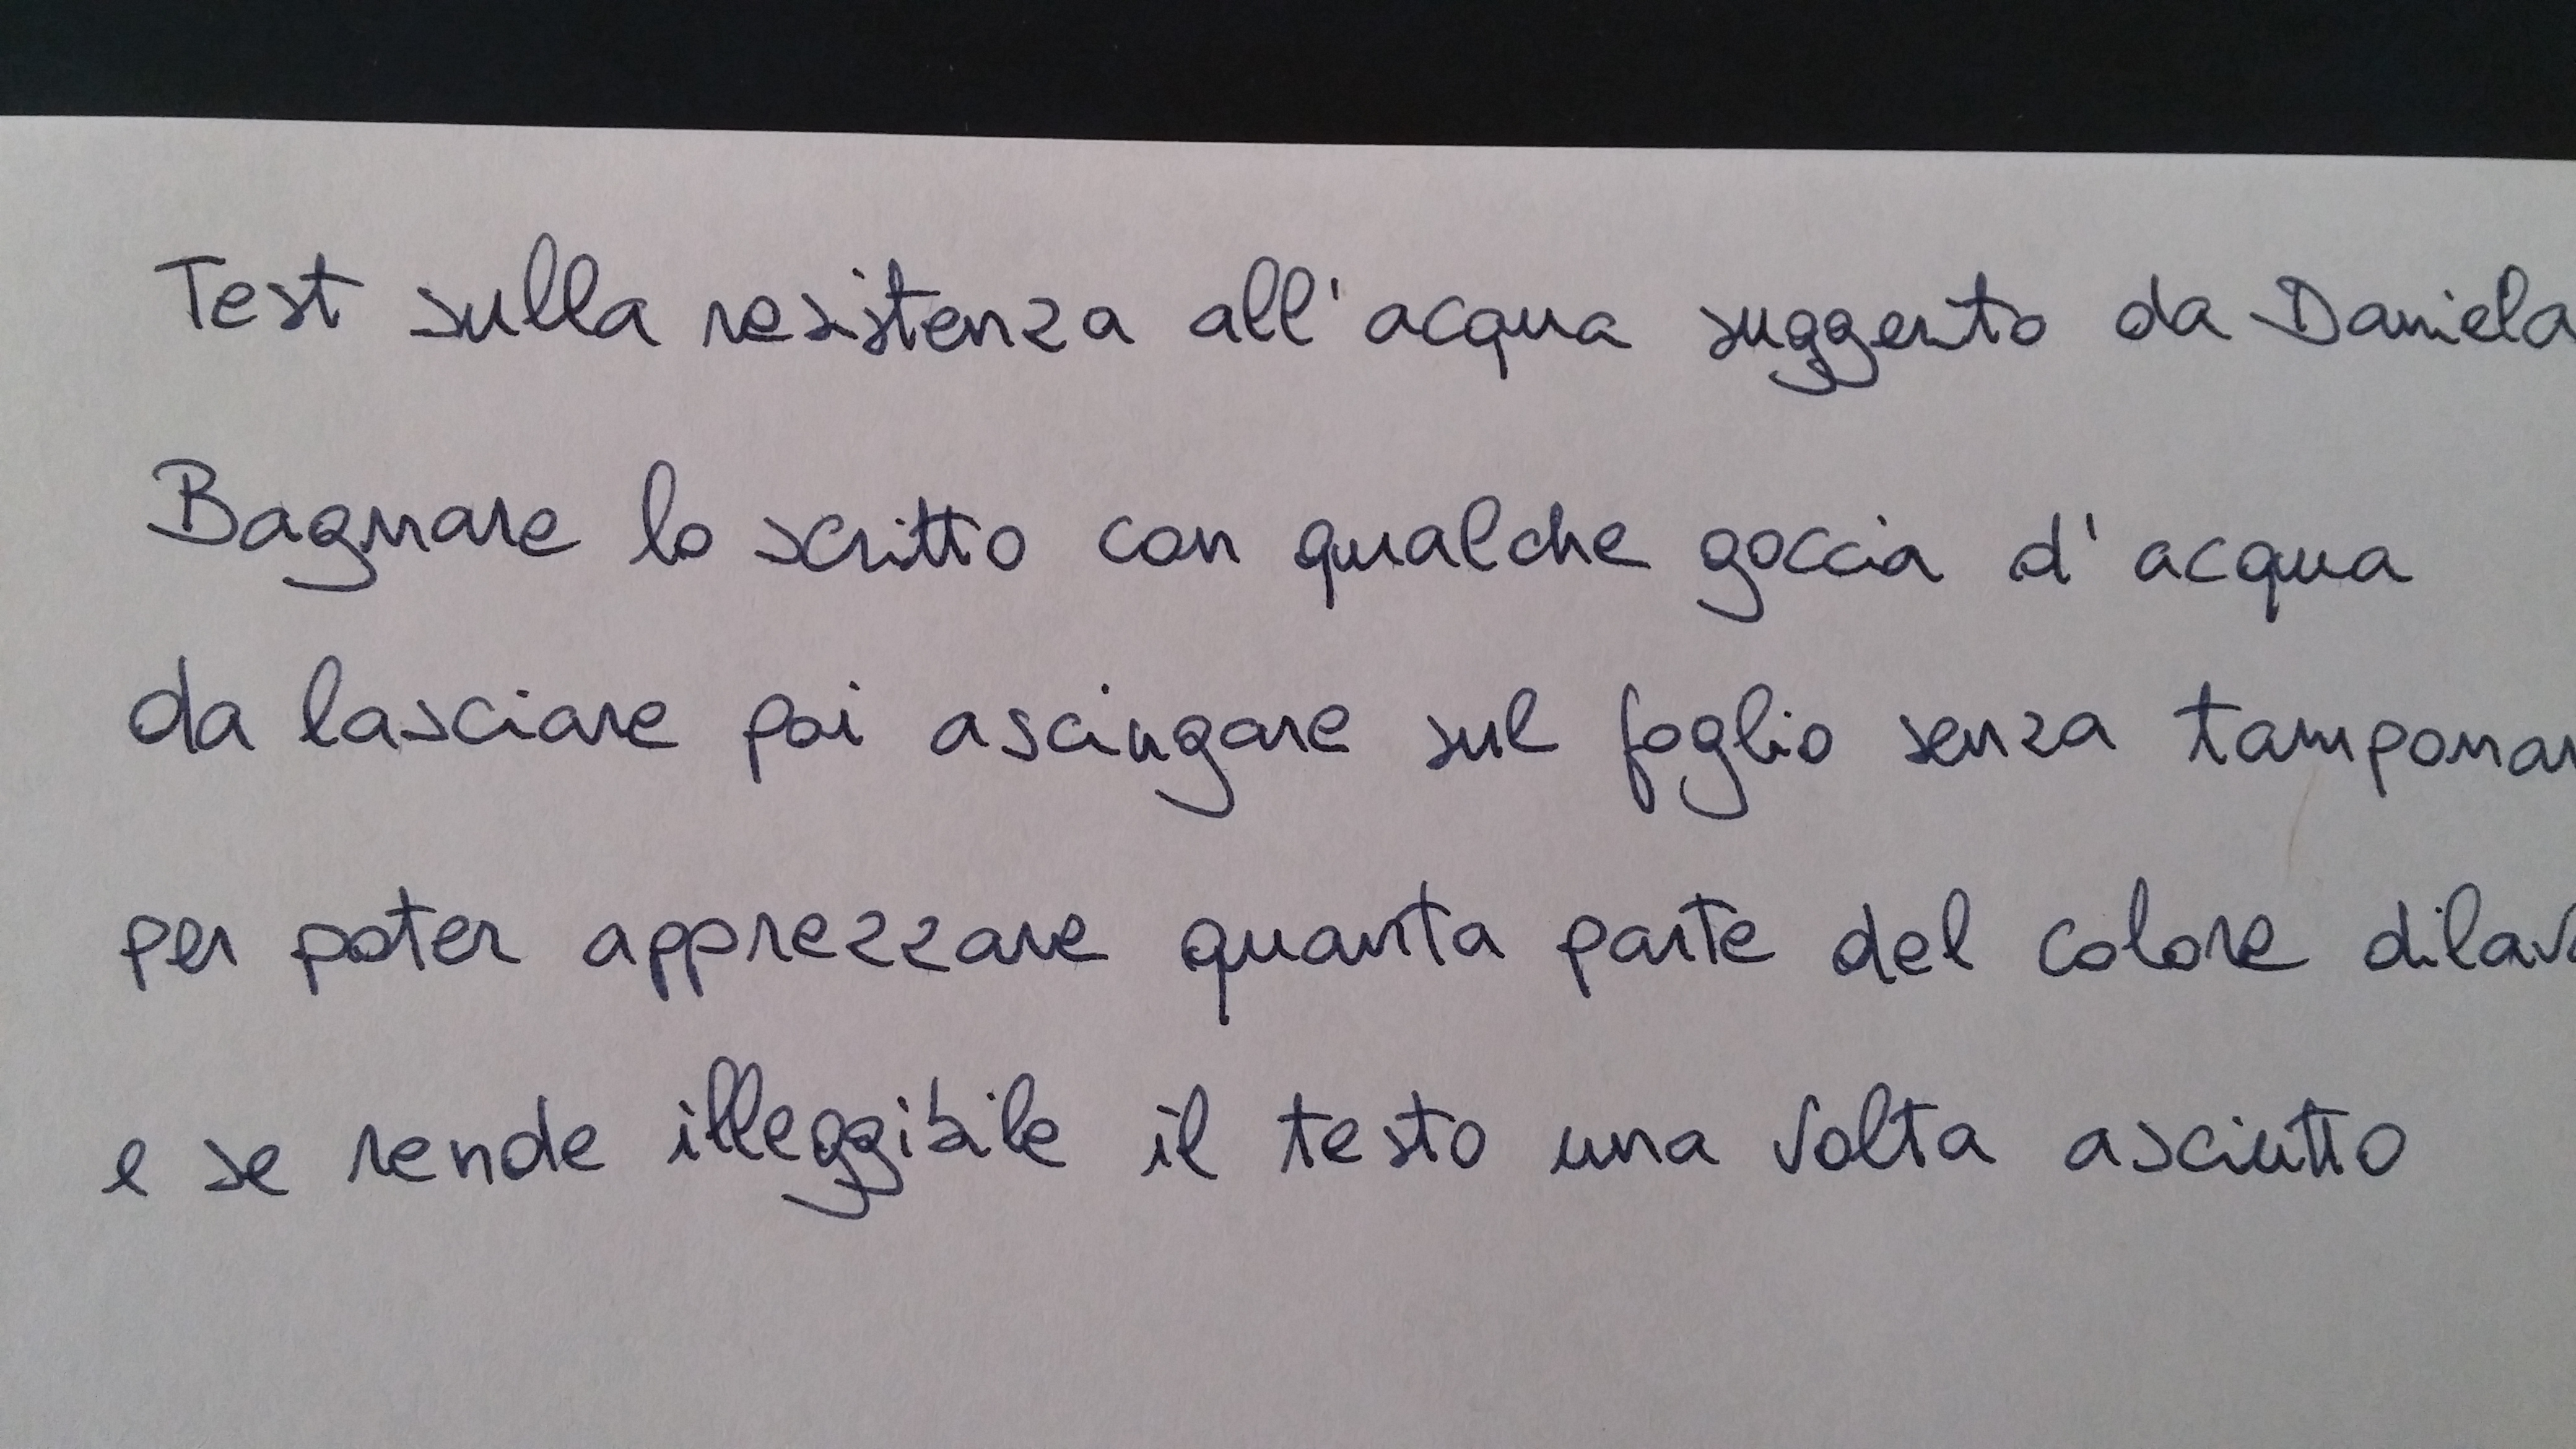 Test sulla resistenza all'acqua suggerito da Daniela
Bagnare lo scritto con qualche goccia d'acqua
da lasciare poi asciugare sul foglio senza tamponar
per poter apprezzare quanta parte del colore dilava
e se rende illeggibile il testo una volta asciutto